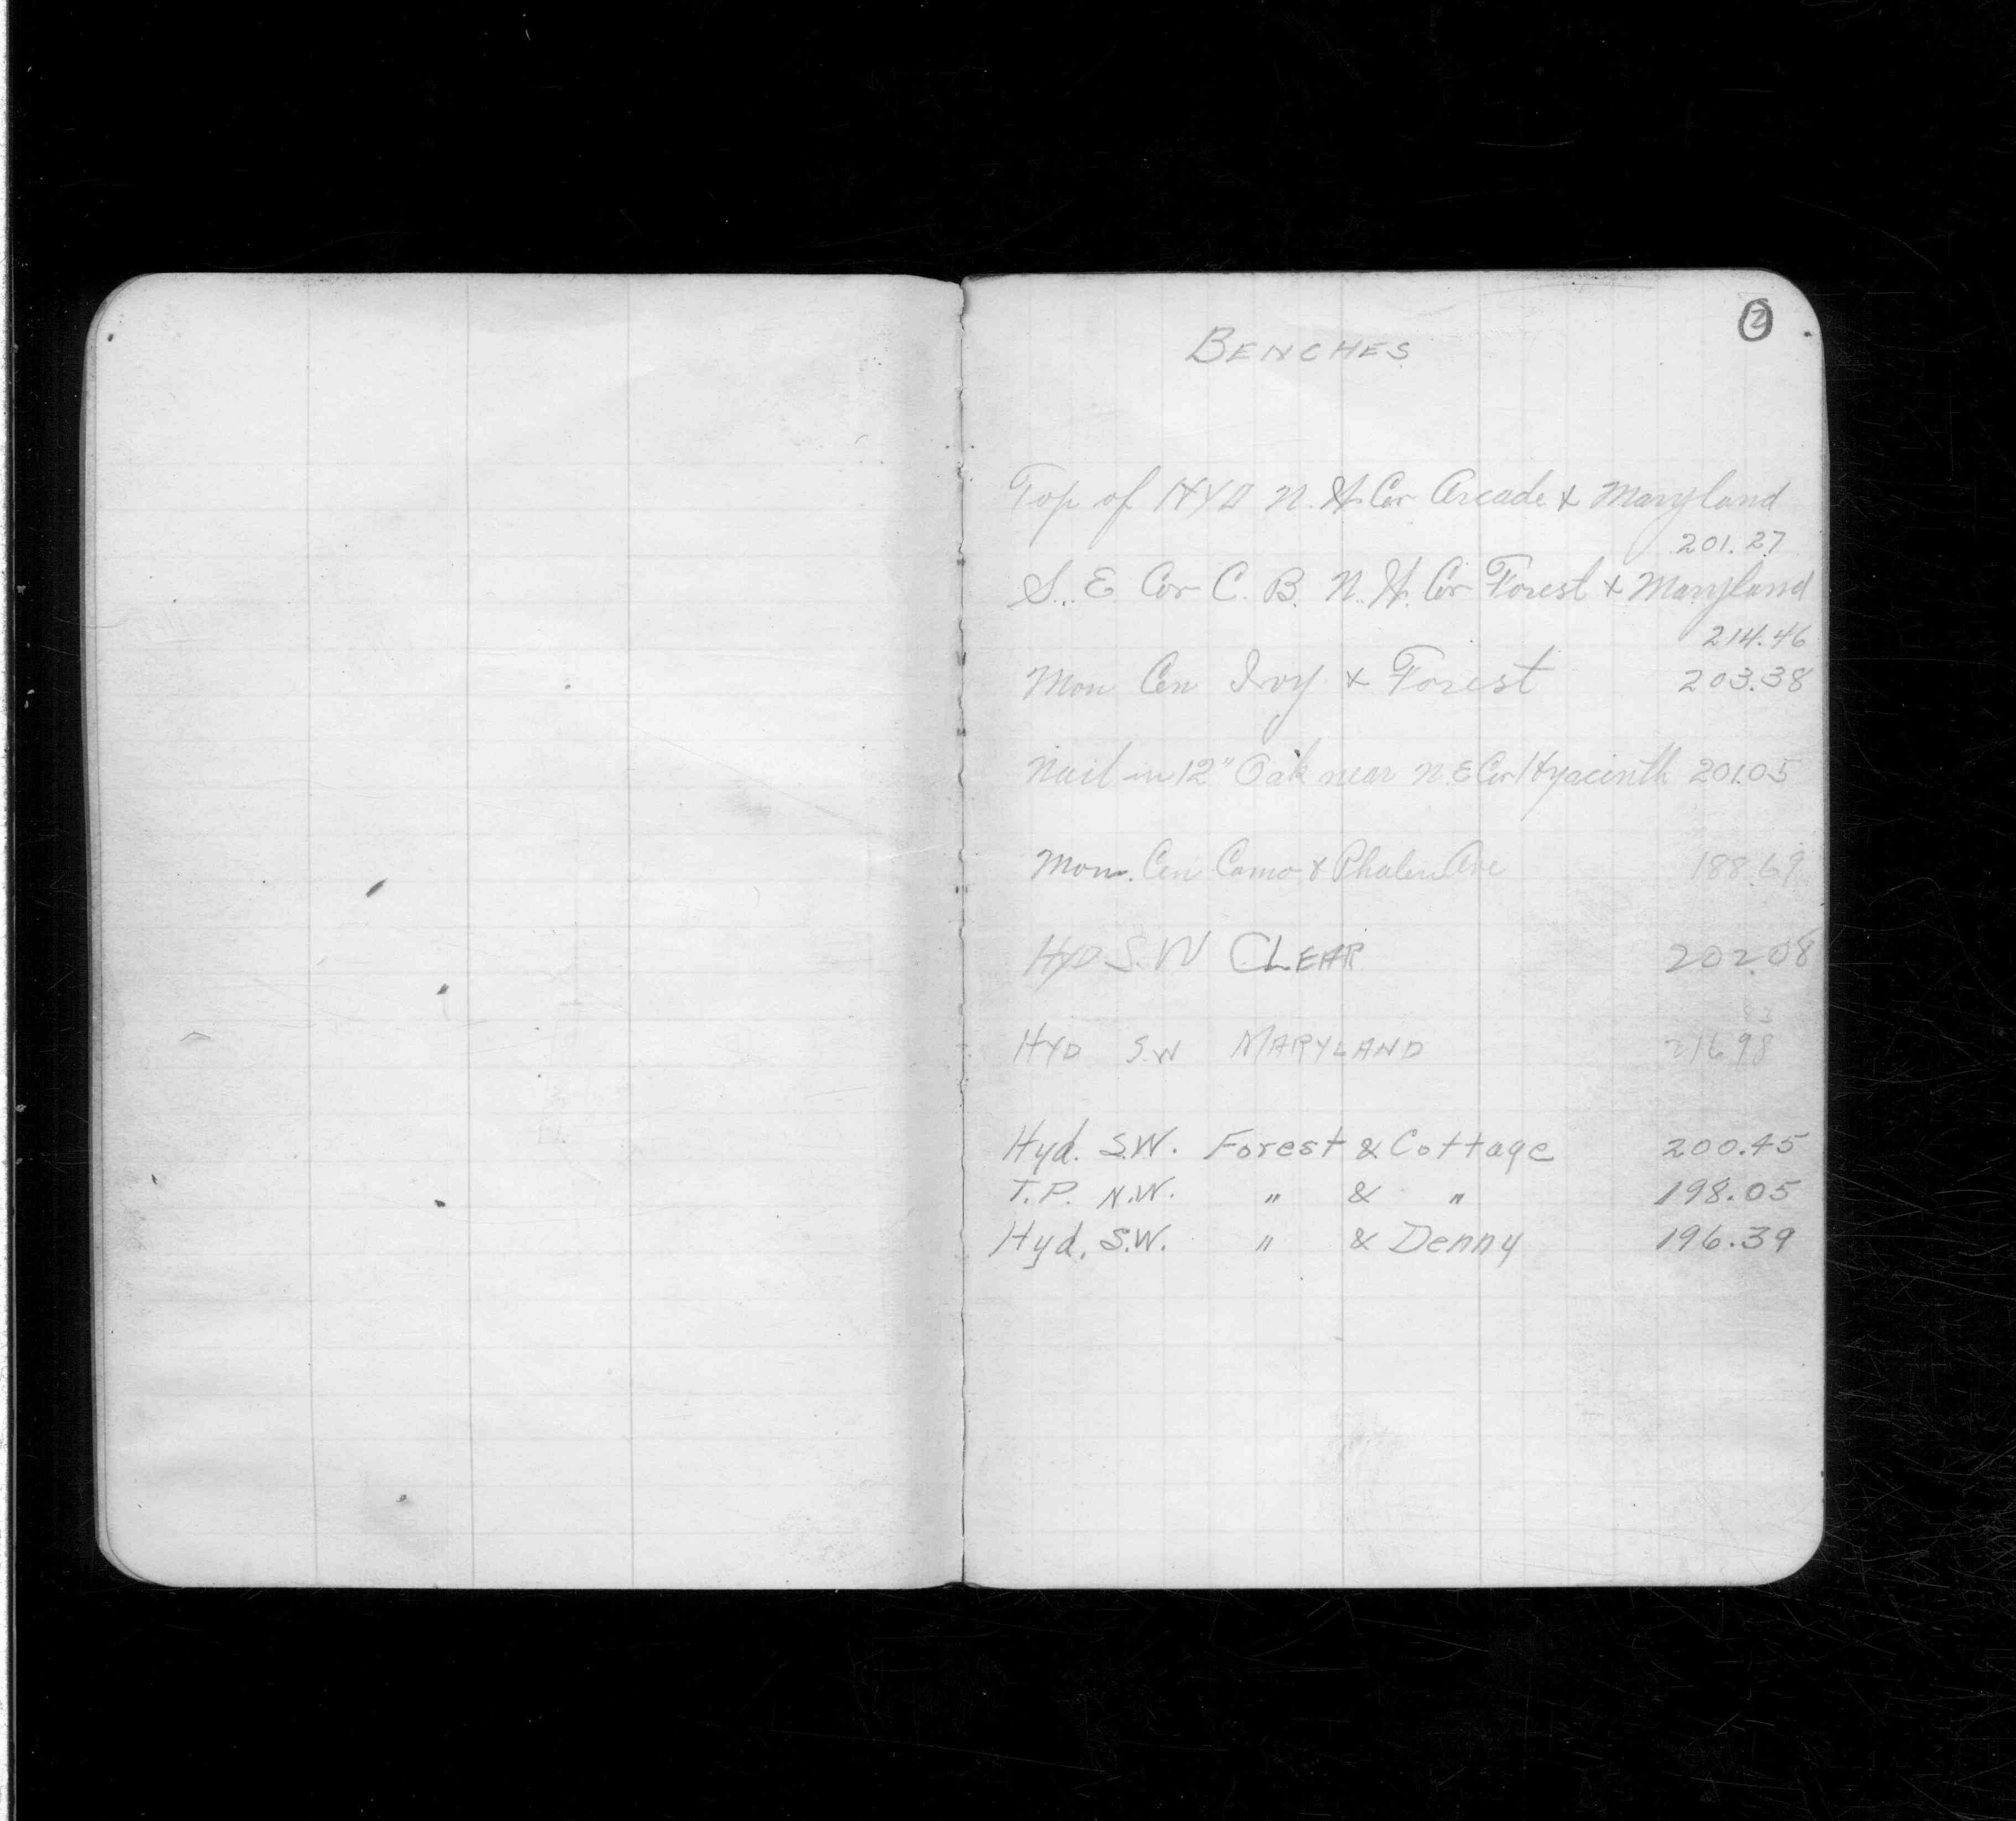 2
BENCHES
Top of HYD N. W. Cor Arcade & Maryland
201.27
S. E Cor C. B. N. W. Cor Forest & Maryland
214.46
Mon Cen Ivy & Forest 203.38
Nail in 12" Oak near N.E Cor Hyacinth 201.05
Mon. Cen Como & Phalen Ave 188.69
HYD. S.W CLEAR 202.08
HYD S.W MARYLAND 216.98
Hyd. S.W. Forest & Cottage 200.45
T.P. N.W. " & " 198.05
Hyd. S.W. " & Denny 196.39